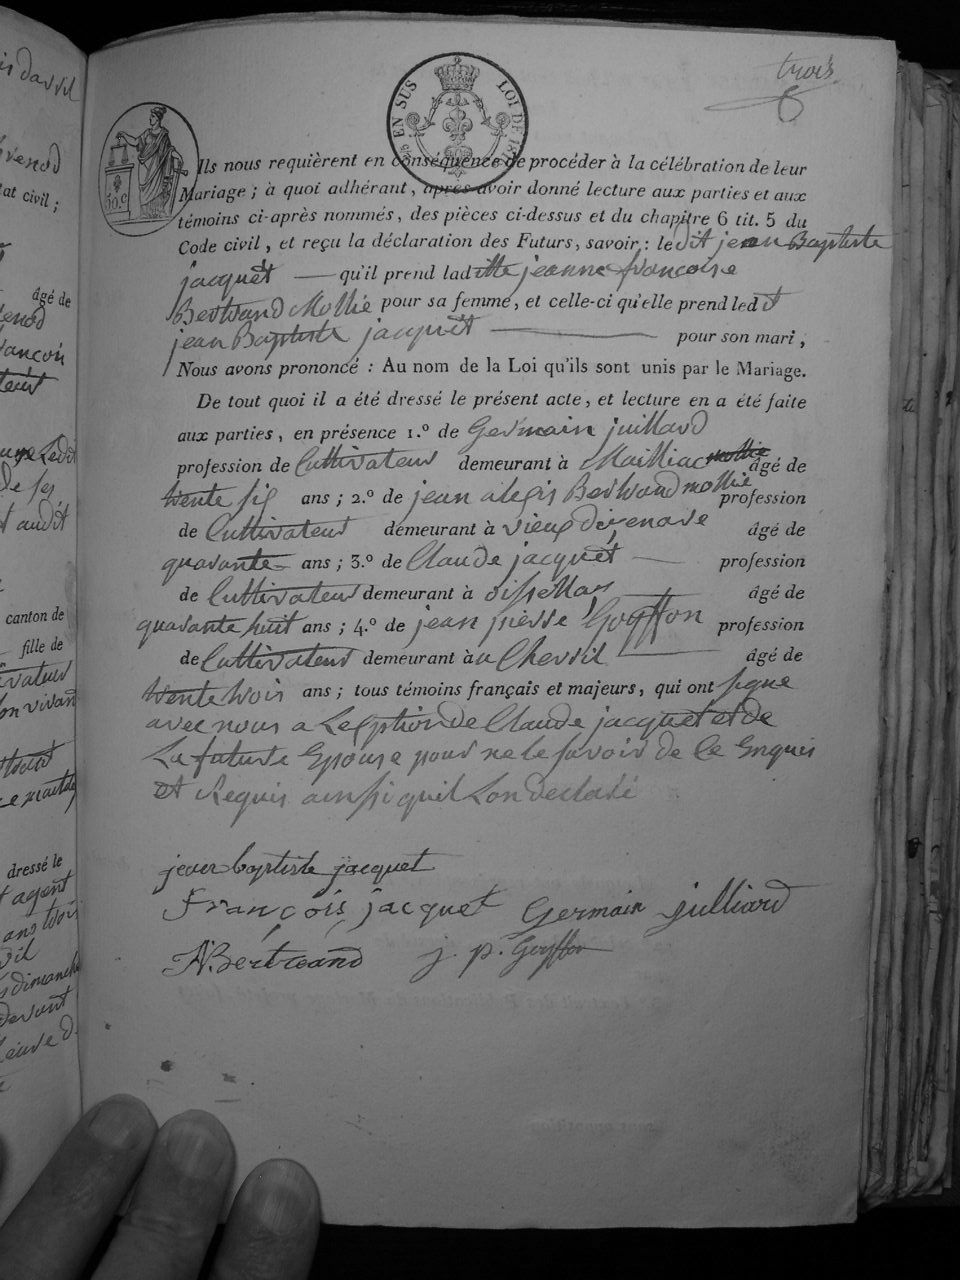 trois
5/10 EN SUS LOI DE 181
50.c
Ils nous requièrent en conséquence de procéder à la célébration de leur
Mariage ; à quoi adhérant, après avoir donné lecture aux parties et aux
témoins ci-après nommés, des pièces ci-dessus et du chapitre 6 tit. 5 du
Code civil, et reçu la déclaration des Futurs, savoir : le dit jean Baptiste
jacquet — qu'il prend laditte jeanne francoise
Bertrand Mollie pour sa femme, et celle-ci qu'elle prend ledit
jean Baptiste jacquet — pour son mari,
Nous avons prononcé : Au nom de la Loi qu'ils sont unis par le Mariage.
De tout quoi il a été dressé le présent acte, et lecture en a été faite
aux parties, en présence 1.º de Germain juillard
profession de Cultivateur demeurant à Mailliac âgé de
trente six ans ; 2.º de jean alexis Bertrand mollie profession
de Cultivateur demeurant à vieux âgé de
quarante ans ; 3.º de Claude jacquet — profession
de Cultivateur demeurant à oissellas âgé de
quarante huit ans ; 4.º de jean pierre Goyffon profession
de Cultivateur demeurant àu Chevril — âgé de
trente trois ans ; tous témoins français et majeurs, qui ont signe
avec nous a Lexption de Claude jacquet et de
La future Epouse pour ne le savoir de ce Enquis
et Requis ainssi quil Lon declaré
jean baptiste jacquet
François jacquet Germain julliard
A Bertrand j. p. Goyffon
is davril
at civil ;
âgé de
canton de
fille de
on vivant
dressé le
et agent
ans trois
dimanche
devant